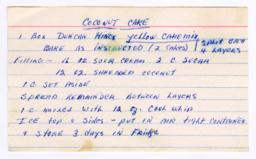 COCONUT CAKE
1 Box DUNCAN HINES yellow CAKE MIX
BAKE AS INSTRUCTED (2 CAKES) SPLIT EACH
4 LAYERS
FILLING - 16 OZ SOUR CREAM 2 C. SUGAR
12 OZ. SHREDDED COCONUT
1 C. SET ASIDE
SPREAD REMAINDER BETWEEN LAYERS
1 C MIXED WITH 12 OZ. COOL WHIP
ICE TOP & SIDES - PUT IN AIR TIGHT CONTAINER
& STORE 3 DAYS IN FRIDGE